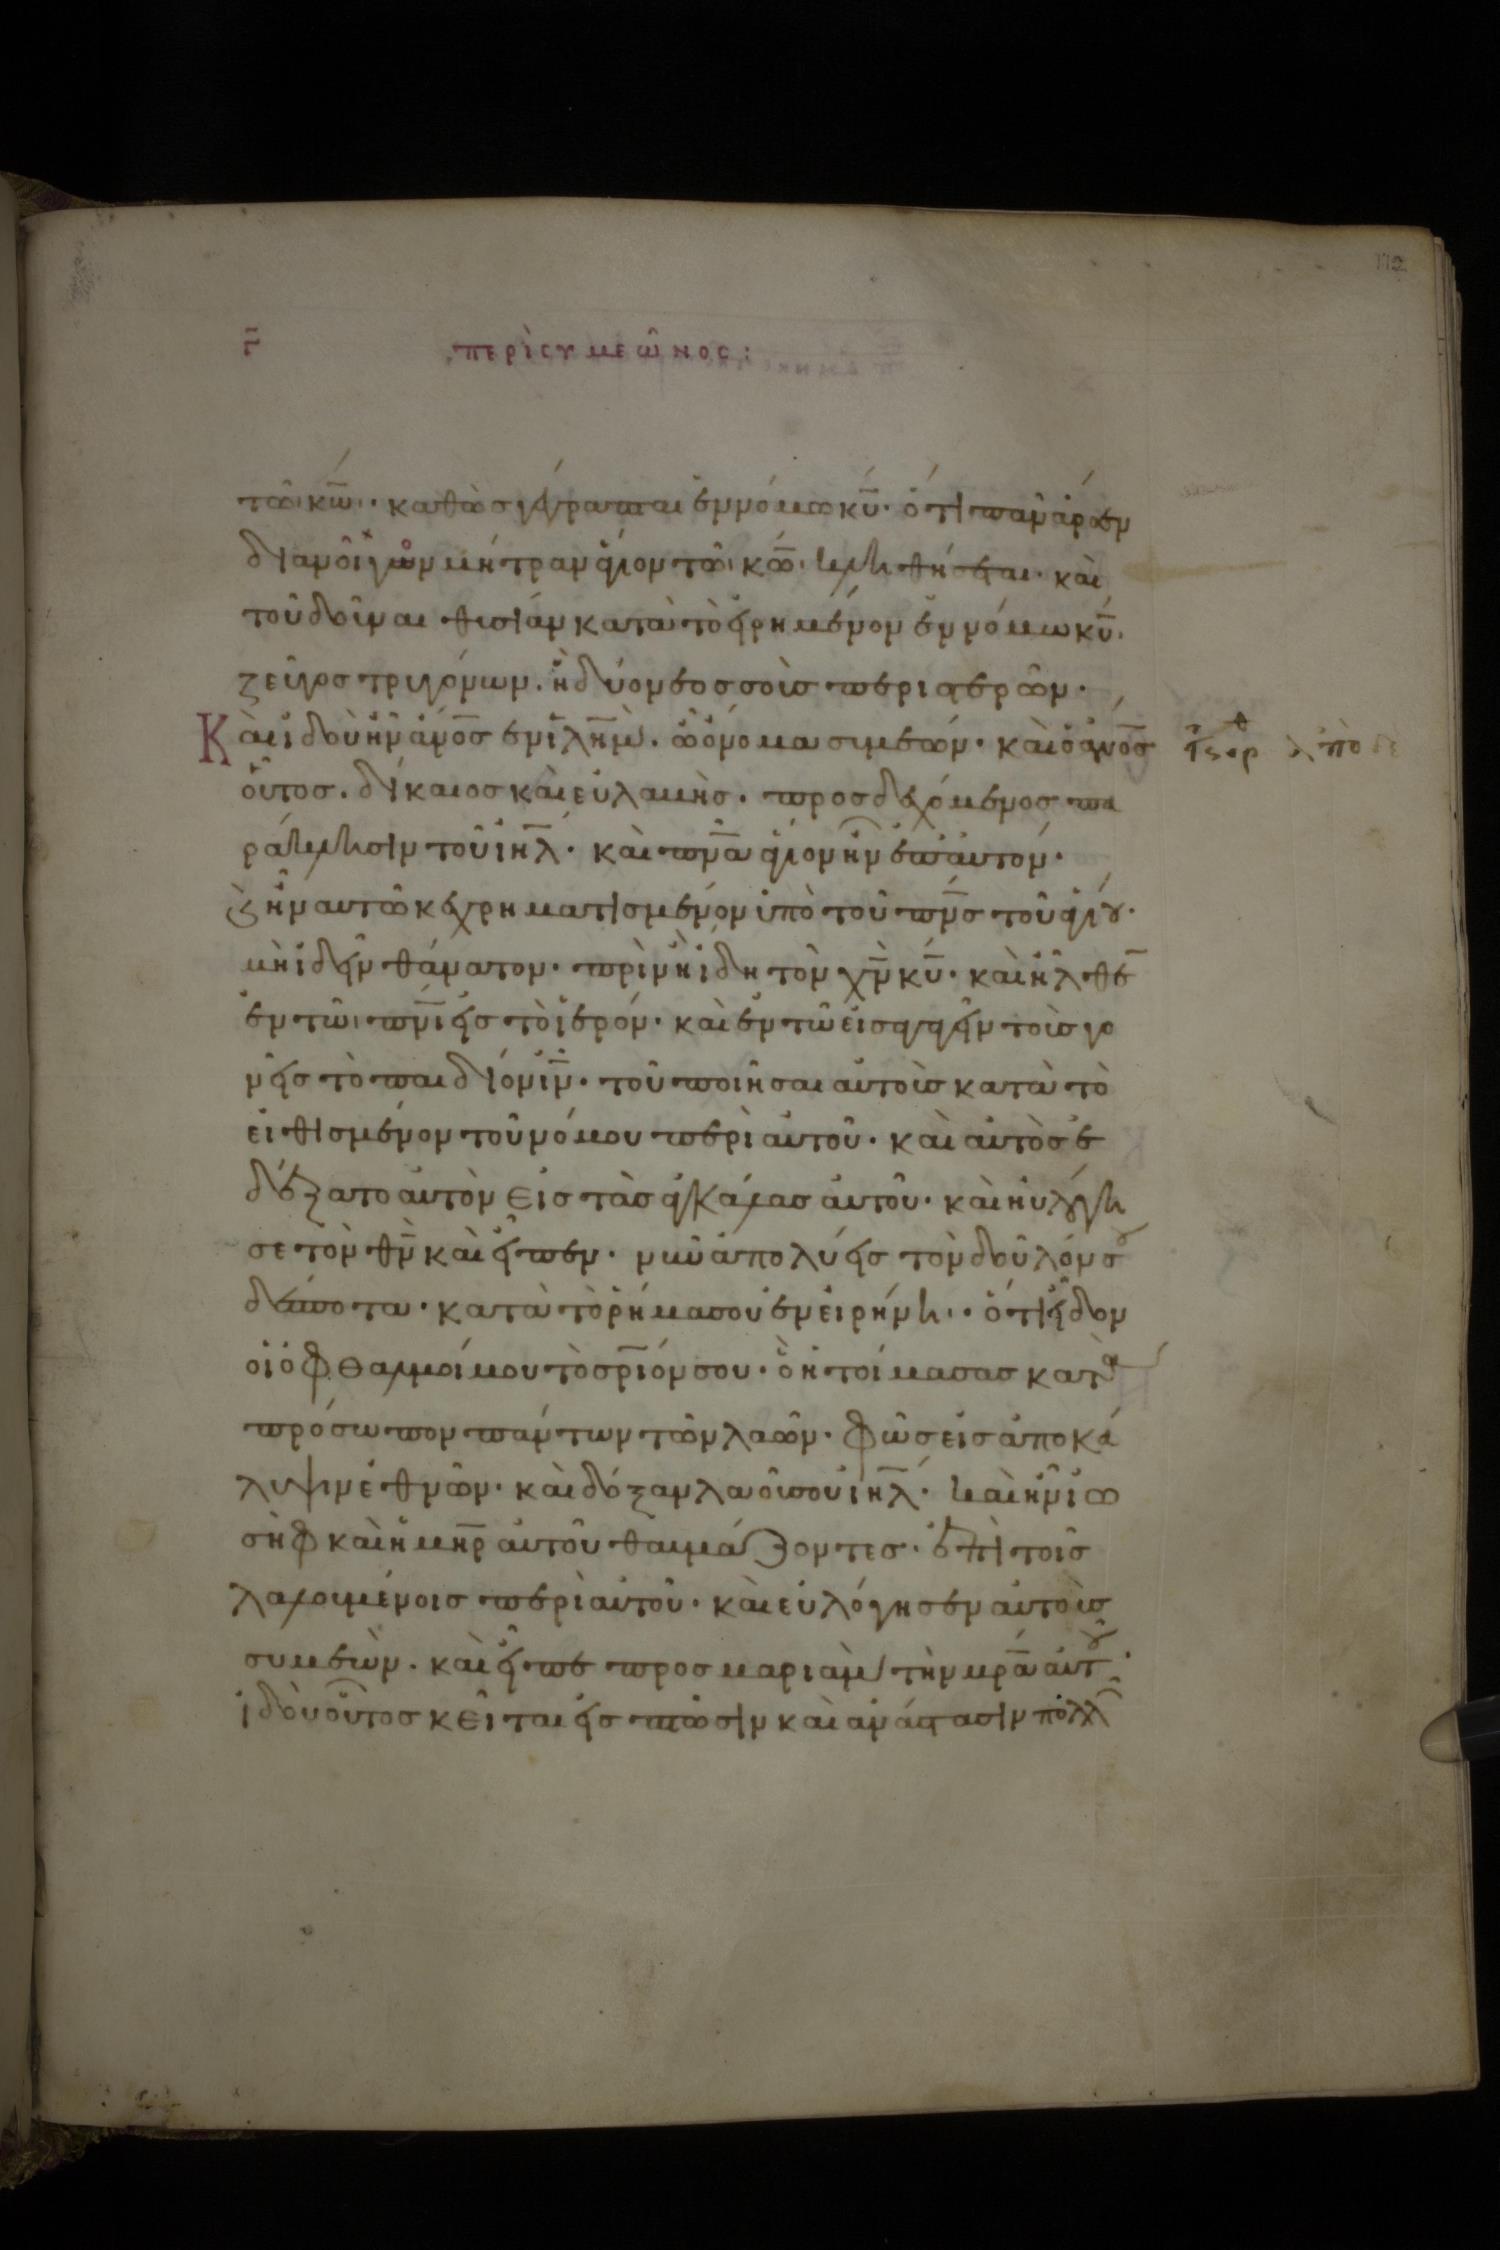 112
γ̄ περὶ συμεῶνος:
τῶ κ̅ω̅· καθὼς γέγραπται ἐν νόμω κ̅υ̅· ὅτι πᾶν ἄρσεν
διανοῖγον μήτραν ἅγιον τῶ κ̅ω̅ κληθήσεται· καὶ
τοῦ δοῦναι θυσίαν κατὰ τὸ εἰρημένον ἐν νόμω κ̅υ̅·
ζεῦγος τρυγόνων· ἢ δύο νεοσσοὺς περιστερῶν·
Καὶ ἰδοὺ ἦν ἄν̅ο̅ς̅ ἐν ἱ̅λ̅η̅μ̅· ὧ ὄνομα συμεών· καὶ ὁ ἄν̅ο̅ς̅
οὗτος· δίκαιος καὶ εὐλαβὴς· προσδεχόμενος πα
ράκλησιν τοῦ ἰη̅λ̅· καὶ π̅ν̅α̅ ἅγιον ἦν ἐπ' αὐτόν·
καὶ ἦν αὐτῶ κεχρηματισμένον ὑπὸ τοῦ π̅ν̅ς̅ τοῦ ἁγίου·
μὴ ἰδεῖν θάνατον· πρὶν ἢ ἴδη τὸν χ̅ν̅ κ̅υ̅· καὶ ἦλθεν
ἐν τῶ π̅ν̅ι̅ εἰς τὸ ἱερόν· καὶ ἐν τῶ εἰσαγαγεῖν τοὺς γο
νεῖς τὸ παιδίον ἰ̅ν̅· τοῦ ποιῆσαι αὐτοὺς κατὰ τὸ
εἰθισμένον τοῦ νόμου περὶ αὐτοῦ· καὶ αὐτὸς ἐ
δέξατο αὐτὸν εἰς τὰς ἀγκάλας αὐτοῦ· καὶ ηὐλόγη
σε τὸν θ̅ν̅ καὶ εἶπεν· νῦν ἀπολύεις τὸν δοῦλόν σου
δέσποτα· κατὰ τὸ ῥῆμα σου ἐν εἰρήνη· ὅτι εἶδον
οἱ ὀφθαλμοί μου τὸ σ̅ρ̅ιόν σου· ὃ ἡτοίμασας κατὰ
πρόσωπον πάντων τῶν λαῶν· φῶς εἰς ἀποκά
λυψιν ἐθνῶν· καὶ δόξαν λαοῦ σου ἰη̅λ̅· καὶ ἦν ἰω
σὴφ καὶ ἡ μη̅ρ̅ αὐτοῦ θαυμάζοντες· ἐπὶ τοῖς
λαλουμένοις περὶ αὐτοῦ· καὶ εὐλόγησεν αὐτοὺς
συμεὼν· καὶ εἶπε προς μαριὰμ τὴν μ̅ρ̅α̅ αὐτοῦ·
ἰδοὺ οὗτος κεῖται εἰς πτῶσιν καὶ ἀνάστασιν πολλῶν